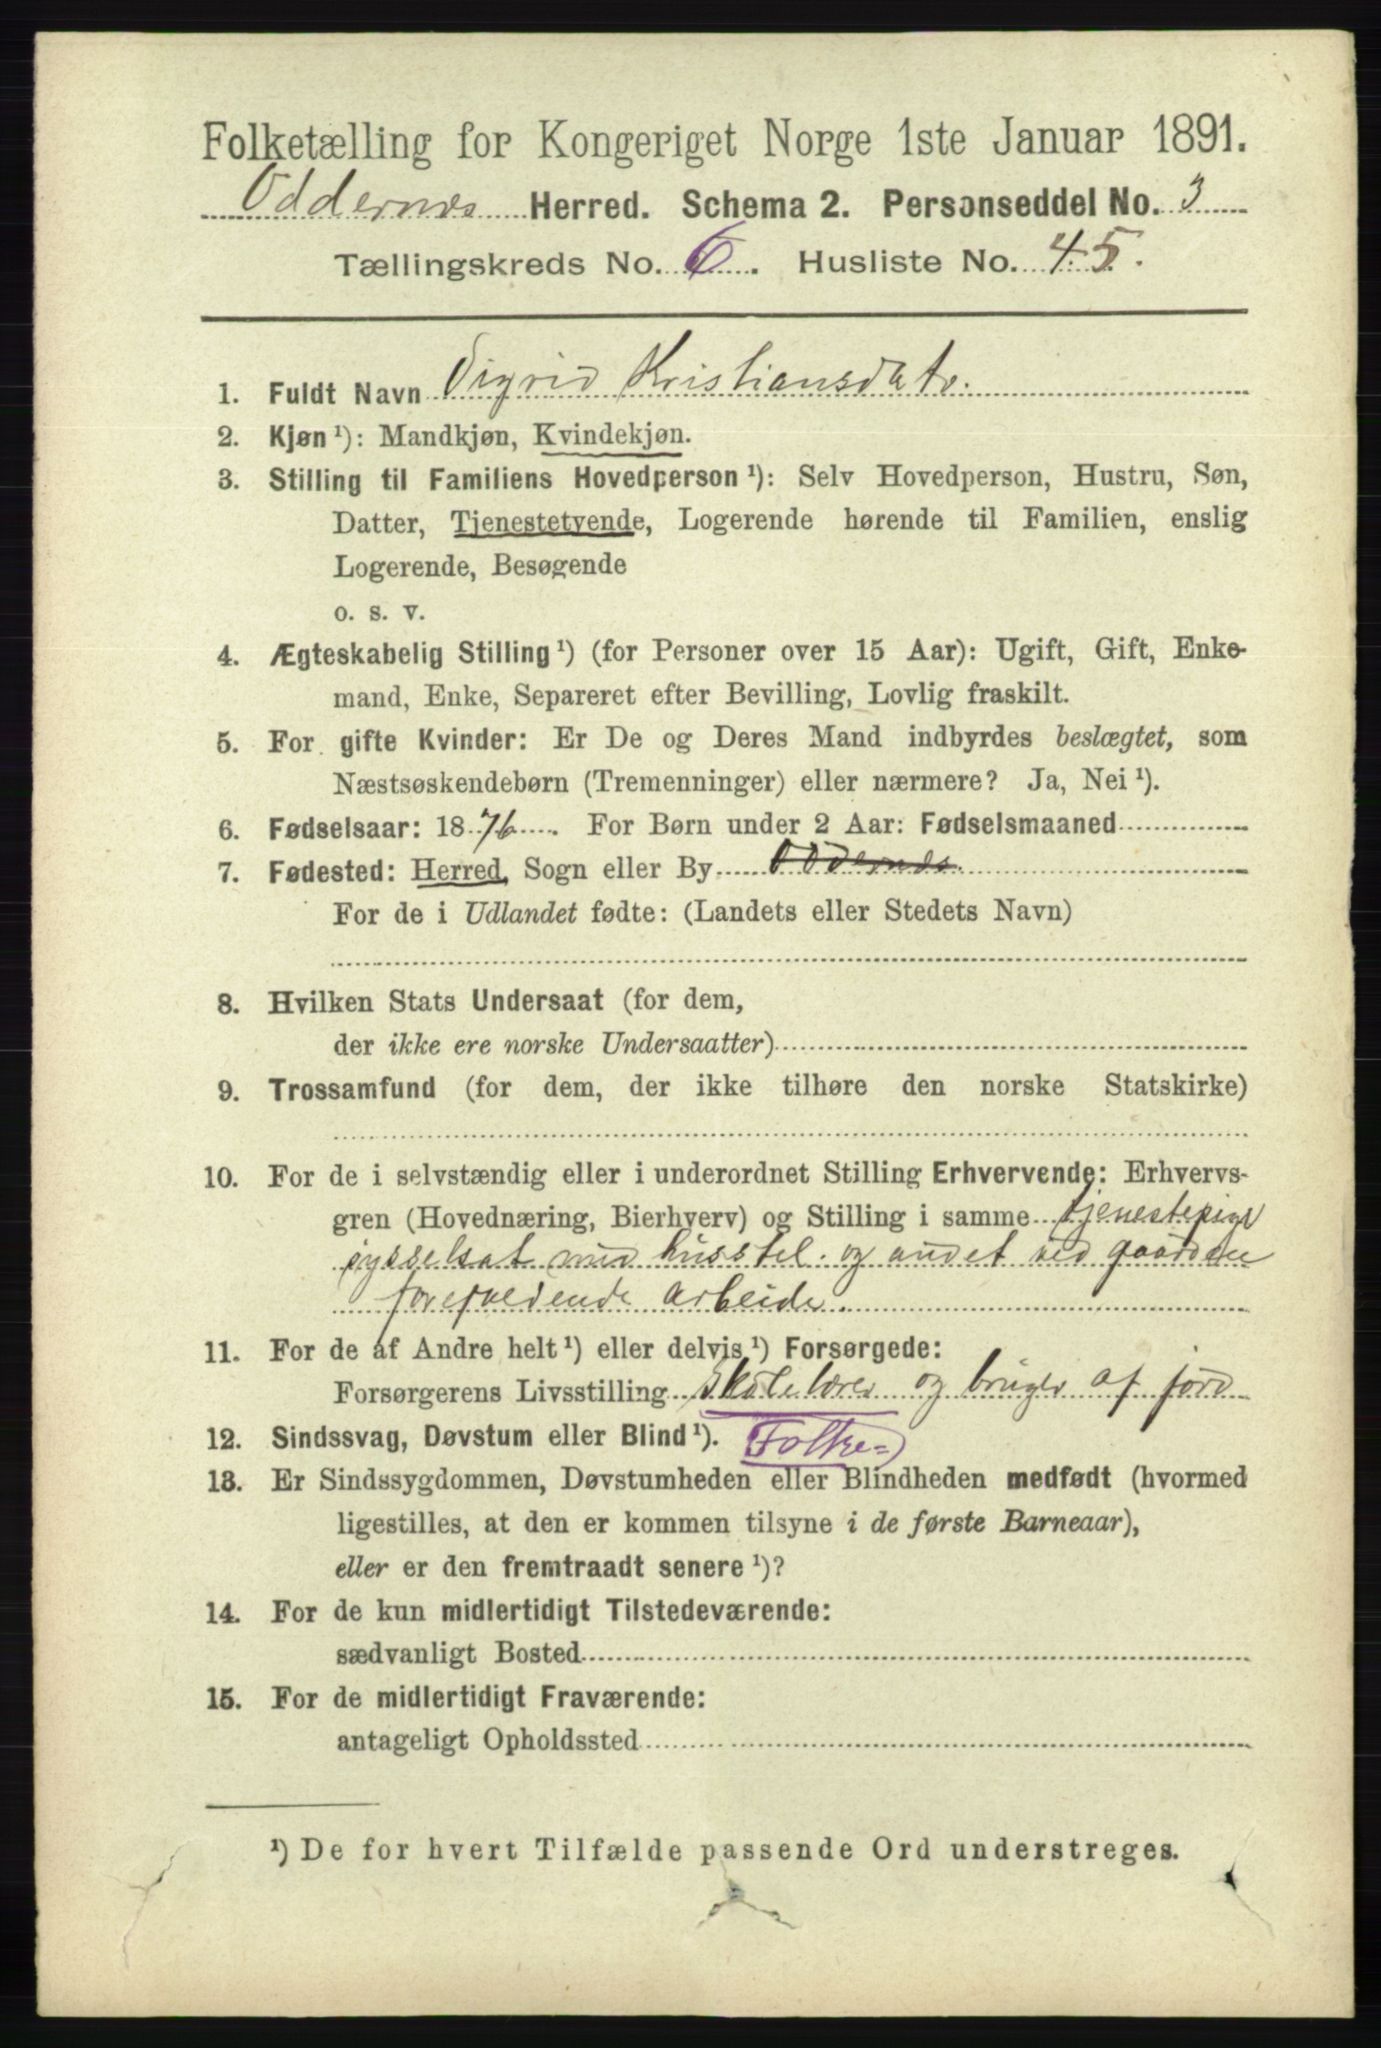 Folketælling for Kongeriget Norge 1ste Januar 1891.
Oddernes Herred. Schema 2. Personseddel No. 3
Tællingskreds No. 6. Husliste No. 45.
1. Fuldt Navn Sigrid Kristiansdatr.
2. Kjøn ¹): Mandkjøn, Kvindekjøn.
3. Stilling til Familiens Hovedperson ¹): Selv Hovedperson, Hustru, Søn,
Datter, Tjenestetyende, Logerende hørende til Familien, enslig
Logerende, Besøgende
o. s. v.
4. Ægteskabelig Stilling ¹) (for Personer over 15 Aar): Ugift, Gift, Enke-
mand, Enke, Separeret efter Bevilling, Lovlig fraskilt.
5. For gifte Kvinder: Er De og Deres Mand indbyrdes beslægtet, som
Næstsøskendebørn (Tremenninger) eller nærmere? Ja, Nei ¹).
6. Fødselsaar: 1876. For Børn under 2 Aar: Fødselsmaaned
7. Fødested: Herred, Sogn eller By Oddernes.
For de i Udlandet fødte: (Landets eller Stedets Navn)
8. Hvilken Stats Undersaat (for dem,
der ikke ere norske Undersaatter)
9. Trossamfund (for dem, der ikke tilhøre den norske Statskirke)
10. For de i selvstændig eller i underordnet Stilling Erhvervende: Erhvervs-
gren (Hovednæring, Bierhverv) og Stilling i samme tjenestepige
sysselsat med husstel. og andet ved gaarden
forefaldende arbeide.
11. For de af Andre helt ¹) eller delvis ¹) Forsørgede:
Forsørgerens Livsstilling Skolelærer og bruger af jord
12. Sindssvag, Døvstum eller Blind ¹). Folke=
13. Er Sindssygdommen, Døvstumheden eller Blindheden medfødt (hvormed
ligestilles, at den er kommen tilsyne i de første Barneaar),
eller er den fremtraadt senere ¹)?
14. For de kun midlertidigt Tilstedeværende:
sædvanligt Bosted
15. For de midlertidigt Fraværende:
antageligt Opholdssted
¹) De for hvert Tilfælde passende Ord understreges.